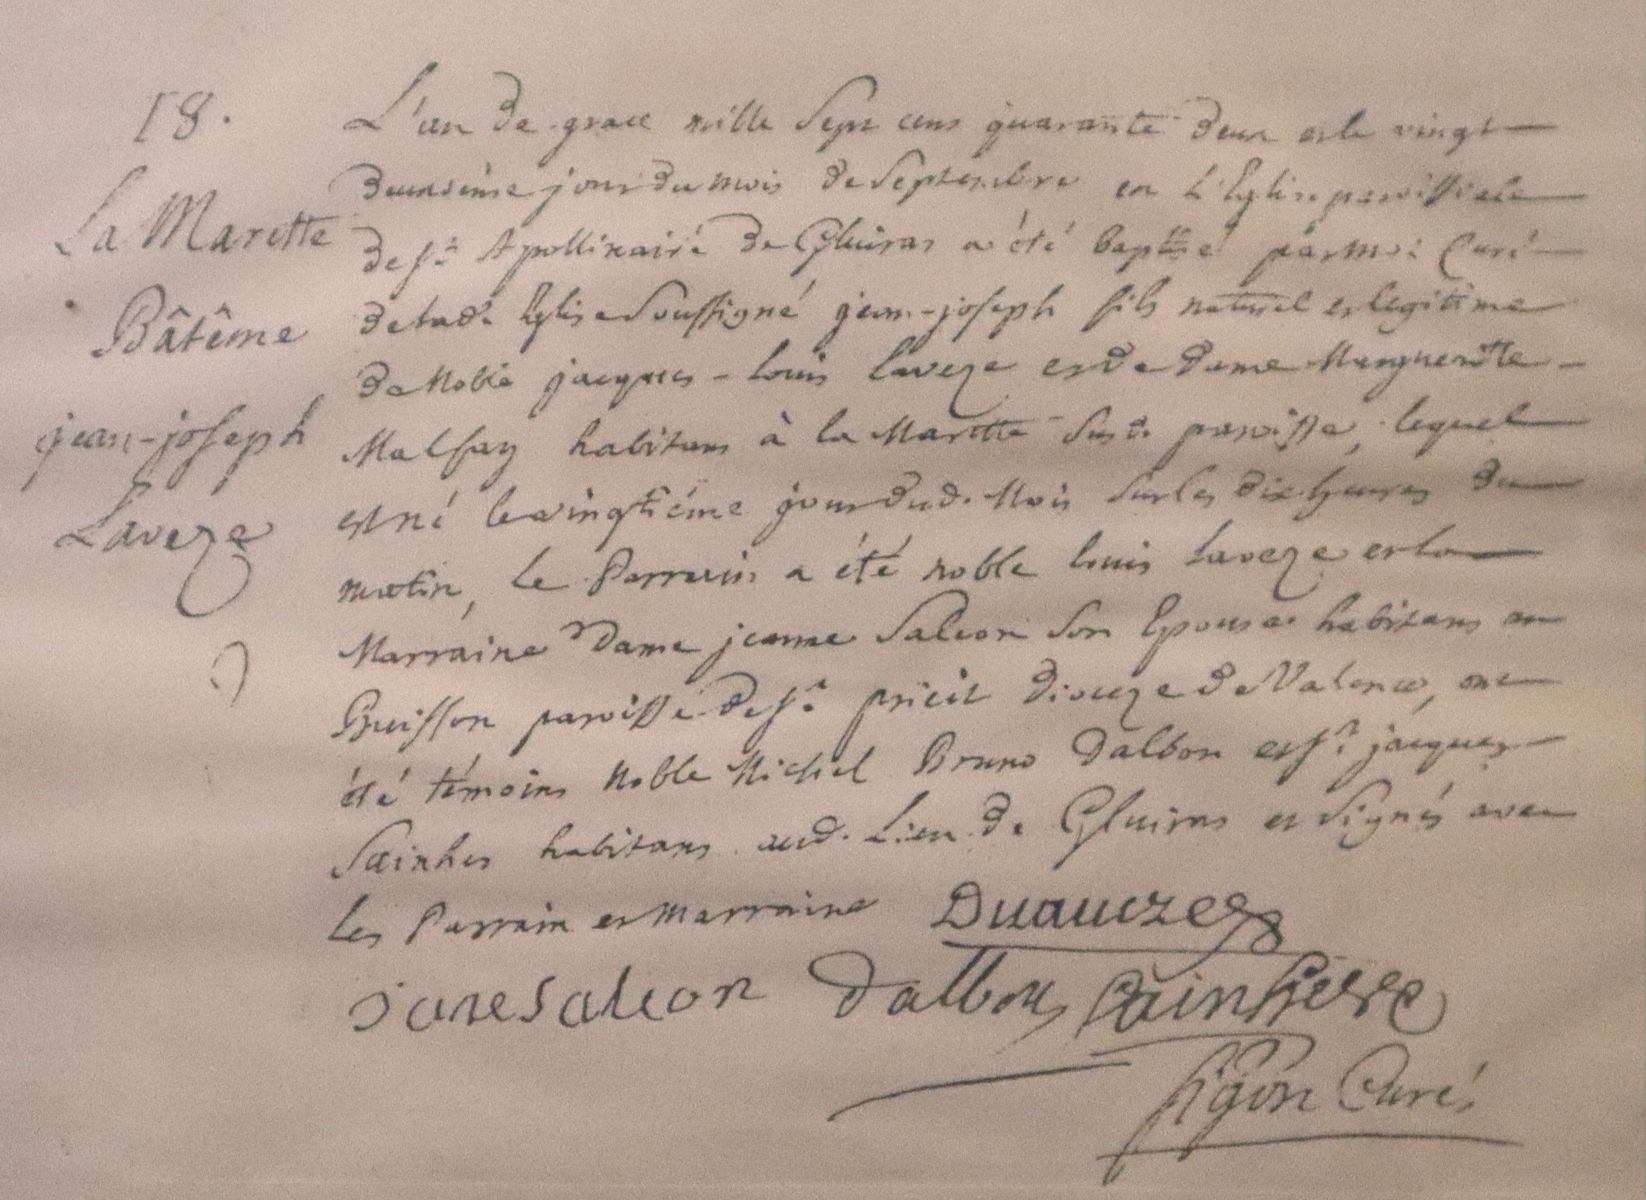 18.
La Marette
Bâtême
jean-joseph
Laveze
L'an de grace mille sept cens quarante deux et le vingt
deuxseime jour du mois de Septembre en l'Eglise paroissiale
de St Apollinaire de Gluiras a été baptisé par moi Curé
de lad. Eglise soussigné jean-joseph fils naturel et legitime
de Noble jacques-louis laveze et de dame Margueritte
Malfay habitans à la Marette susd. paroisse, lequel
est né le vingtiéme jour dud. Mois sur les dix heures du
matin, le Parrain a été noble louis laveze et la
Marraine Dame jeanne Saleon son Epouse habitans au
Buisson paroisse de St prieit dioceze de Valence, ont
été témoins Noble Michel Bruno dalbon et Sr jacques
Sainhes habitans aud. Lieu de Gluiras et signés avec
les Parrain et marraine
Saleon dalbon
Curé